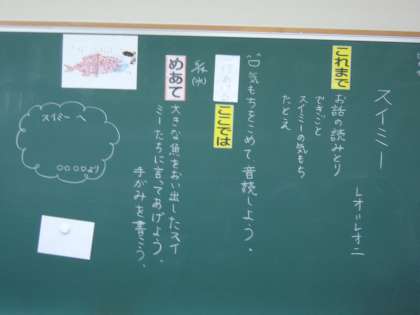 スイミー
レオ=レオニ
これまで
お話の読みとり
できごと
スイミーの気もち
たとえ
ここでは
気もちをこめて、音読しよう。
めあて
大きな魚をおい出したスイ
ミーたちに言ってあげよう。
手がみを書こう。
スイミーへ
○○○○より